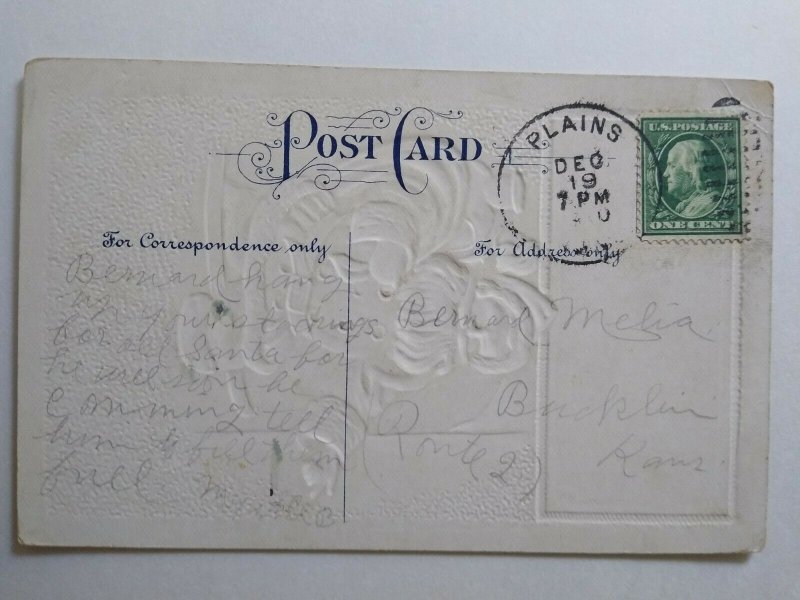 POST CARD
PLAINS
DEC
19
7 PM
U.S. POSTAGE
ONE CENT
For Correspondence only
For Address only
Bernard hang
up your stockings
for old Santa for
he will soon be
Comming tell
him to fill them
full
Bernard Melia
Bucklin
(Route 2) Kans.